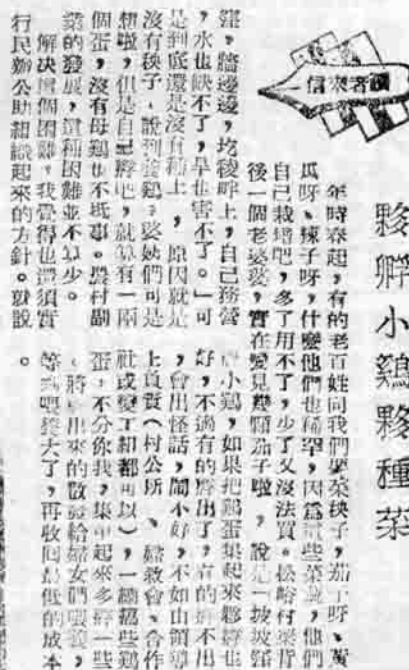 讀者來信
夥孵小鷄夥種菜
年時春起,有的老百姓向我們要菜秧子,茄子呀、
瓜呀、辣子呀,什麼他們也稱罕,因爲這些菜,他們
自己栽培吧,多了用不了,少了又沒法買。松峪村梁背
後一個老婆婆,實在愛見幾顆茄子啦,說是「坡坡
窪,牆邊邊,圪稜畔上,自己務營
,水也缺不了,旱也害不了。」可
是到底還是沒有種上,原因就是
沒有秧子,說到養鷄,婆姨們可是
想啦,但是自己孵吧,就算有一兩
個蛋,沒有母鷄也不抵事。農村副
業的發展,這種困難並不算少。
解決這個困難,我覺得也還須實
行民辦公助組織起來的方針。就說
孵小鷄,如果把鷄蛋集起來夥孵也
好,不過有的孵出了,有的孵不出
,會出怪話,鬧不好,不如由領導
上負責(村公所、救會、合作
社或變工組都可以),一總些鷄
蛋,不分你我,集中起來多孵一些
,將孵出來的數給婦女們喂養,
等到喂養大了,再收回最低的成本
。